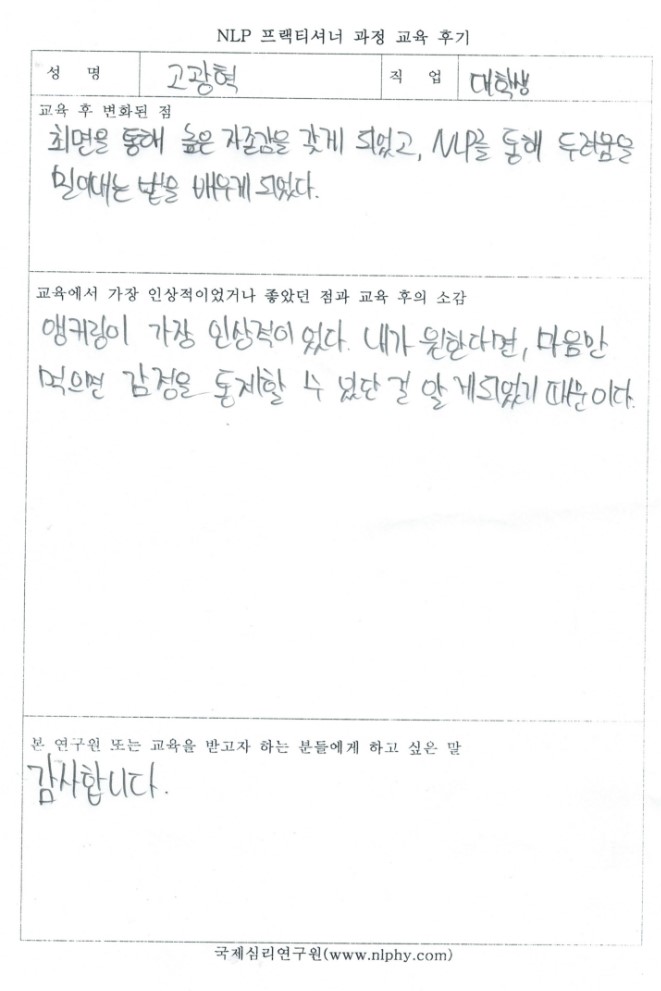 NLP 프랙티셔너 과정 교육 후기
성 명 고광혁 직 업 대학생
교육 후 변화된 점
최면을 통해 높은 자존감을 갖게 되었고, NLP를 통해 두려움을
밀어내는 법을 배우게 되었다.
교육에서 가장 인상적이었거나 좋았던 점과 교육 후의 소감
앵커링이 가장 인상적이었다. 내가 원한다면, 마음만
먹으면 감정을 통제할 수 있단 걸 알게되었기 때문이다.
본 연구원 또는 교육을 받고자 하는 분들에게 하고 싶은 말
감사합니다.
국제심리연구원(www.nlphy.com)